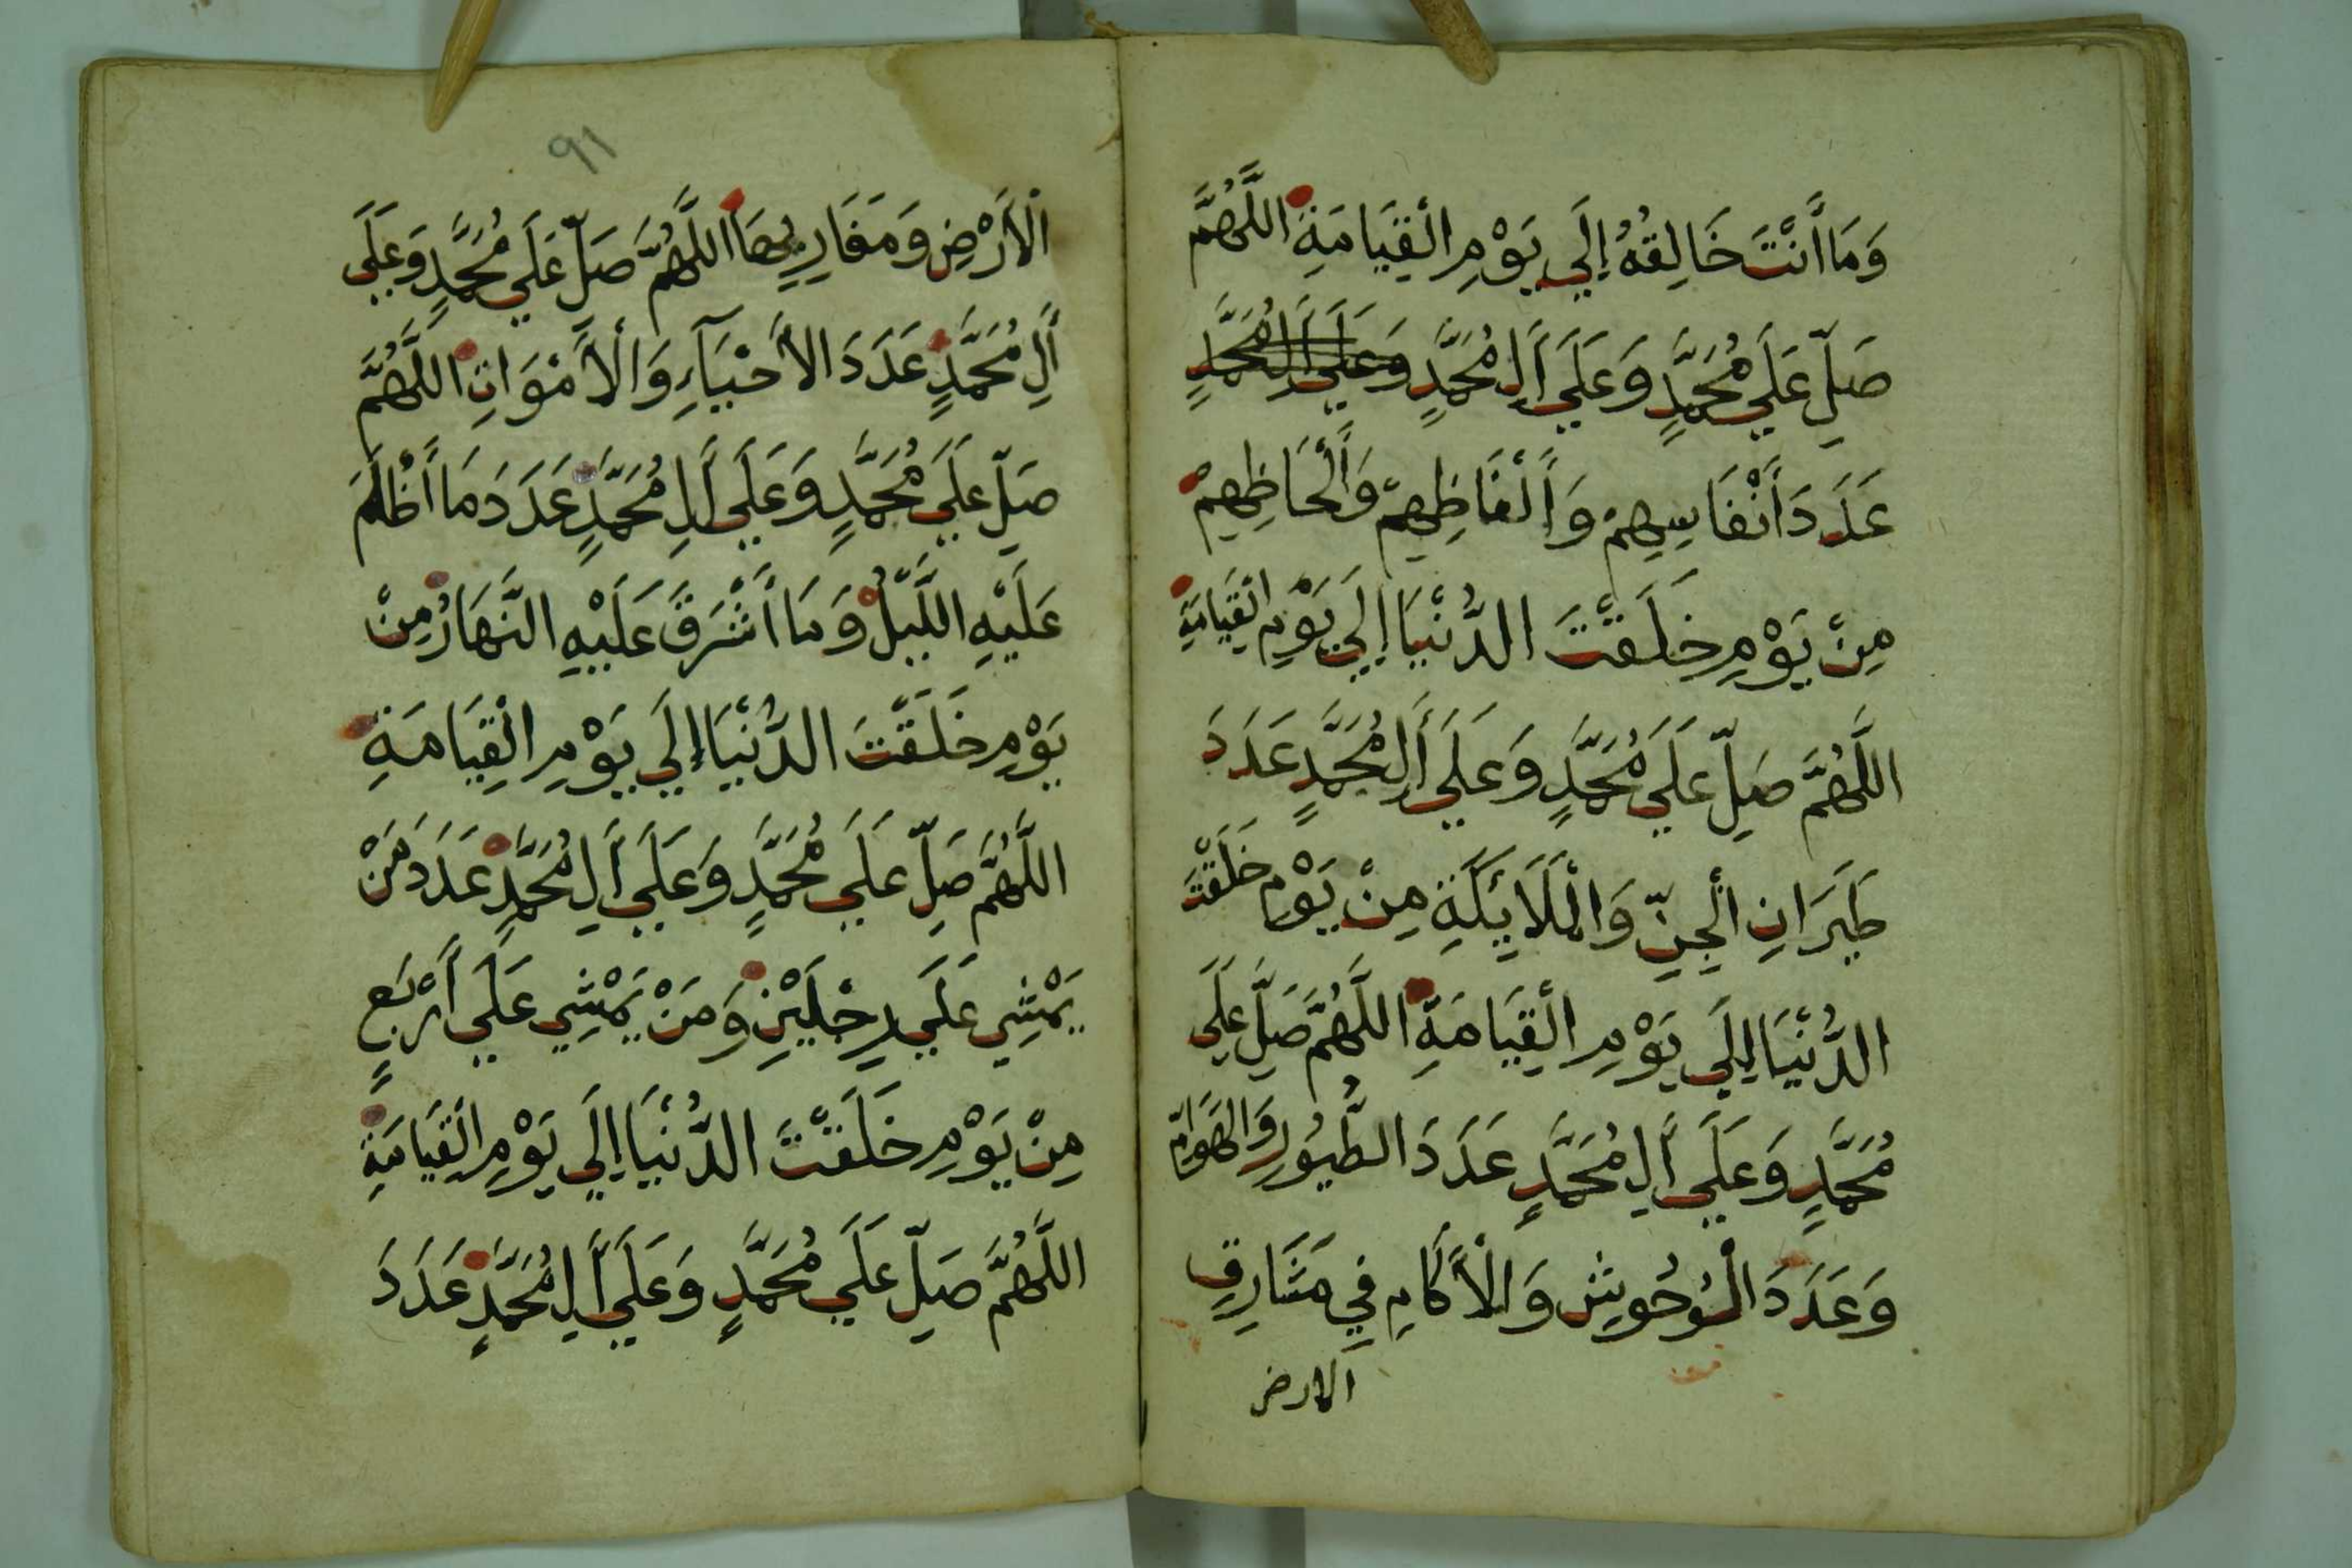 وَمَا أَنْتَ خَالِقُهُ إِلَي يَوْمِ الْقِيَامَةِ اللَّهُمَّ
صَلِّ عَلَي مُحَمَّدٍ وَعَلَي أَلِ مُحَمَّدٍ وَعَلَي أَلِ مُحَمَّدٍ
عَدَدَ أَنْفَاسِهِمْ وَأَلْفَاظِهِمْ وَأَلْحَاظِهِمْ
مِنْ يَوْمِ خَلَقْتَ الدُّنْيَا إِلَي يَوْمِ الْقِيَامَةِ
اللَّهُمَّ صَلِّ عَلَي مُحَمَّدٍ وَعَلَي أَلِ مُحَمَّدٍ عَدَدَ
طَيَرَانِ الْجِنِّ وَالْمَلَايِكَةِ مِنْ يَوْمِ خَلَقْتَ
الدُّنْيَا إِلَي يَوْمِ الْقِيَامَةِ اللَّهُمَّ صَلِّ عَلَي
مُحَمَّدٍ وَعَلَي أَلِ مُحَمَّدٍ عَدَدَ الطُّيُورِ وَالهَوَامِّ
وَعَدَدَ الْوُحُوشِ وَالْأَكَامِ فِي مَشَارِقِ
الارض
٩١
الْأَرْضِ وَمَغَارِبِهَا اللَّهُمَّ صَلِّ عَلَي مُحَمَّدٍ وَعَلَي
أَلِ مُحَمَّدٍ عَدَدَ الأَحْيَآءِ وَالْأَمْوَاتِ اللَّهُمَّ
صَلِّ عَلَي مُحَمَّدٍ وَعَلَي أَلِ مُحَمَّدٍ عَدَدَ مَا أَظْلَمَ
عَلَيْهِ اللَّيْلُ وَمَا أَشْرَقَ عَلَيْهِ النَّهَارُ مِنْ
يَوْمِ خَلَقْتَ الدُّنْيَا إِلَي يَوْمِ الْقِيَامَةِ
اللَّهُمَّ صَلِّ عَلَي مُحَمَّدٍ وَعَلَي أَلِ مُحَمَّدٍ عَدَدَ مَنْ
يَمْشِي عَلَي رِجْلَيْنِ وَمَنْ يَمْشِي عَلَي أَرْبَعٍ
مِنْ يَوْمِ خَلَقْتَ الدُّنْيَا إِلَي يَوْمِ الْقِيَامَةِ
اللَّهُمَّ صَلِّ عَلَي مُحَمَّدٍ وَعَلَي أَلِ مُحَمَّدٍ عَدَدَ